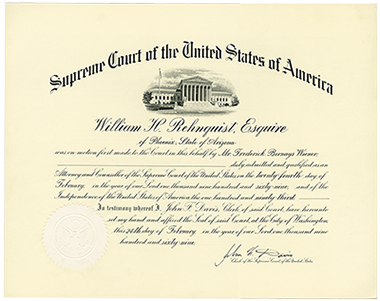 Supreme Court of the United States of America
William H. Rehnquist, Esquire
of Phoenix, State of Arizona
was on motion first made to the Court in this behalf by Mr. Frederick Bernays Wiener,
duly admitted and qualified as an
Attorney and Counsellor of the Supreme Court of the United States on the twenty fourth day of
February, in the year of our Lord one thousand nine hundred and sixty-nine, and of the
Independence of the United States of America the one hundred and ninety-third.
In testimony whereof I, John F. Davis, Clerk of said Court, have hereunto
set my hand and affixed the Seal of said Court, at the City of Washington,
this 24th day of February in the year of our Lord one thousand nine
hundred and sixty-nine.
John F. Davis
Clerk of the Supreme Court of the United States